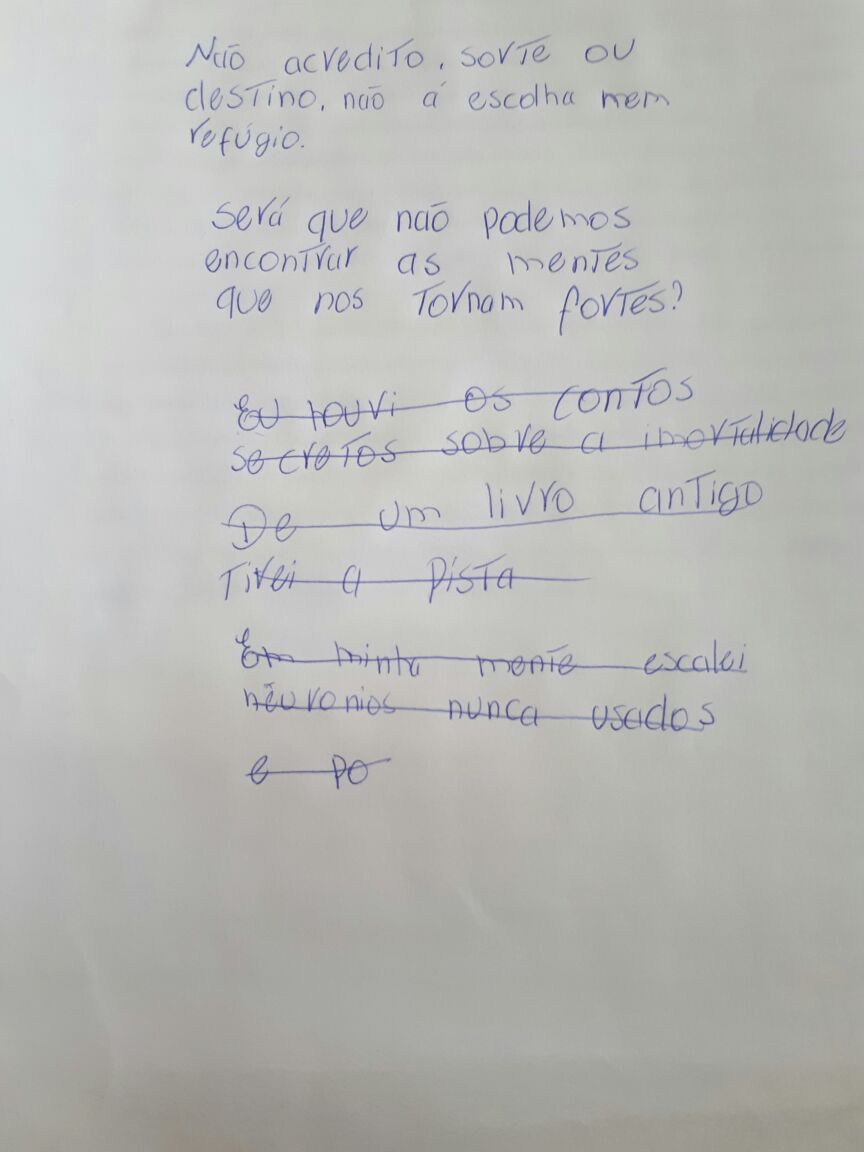 Não acredito, sorte ou
destino, não á escolha nem
refúgio.
Será que não podemos
encontrar as mentes
que nos tornam fortes?
Eu houvi os contos
secretos sobre a imortalidade
De um livro antigo
Tirei a pista
Em minha mente escalei
nêuronios nunca usados
e po